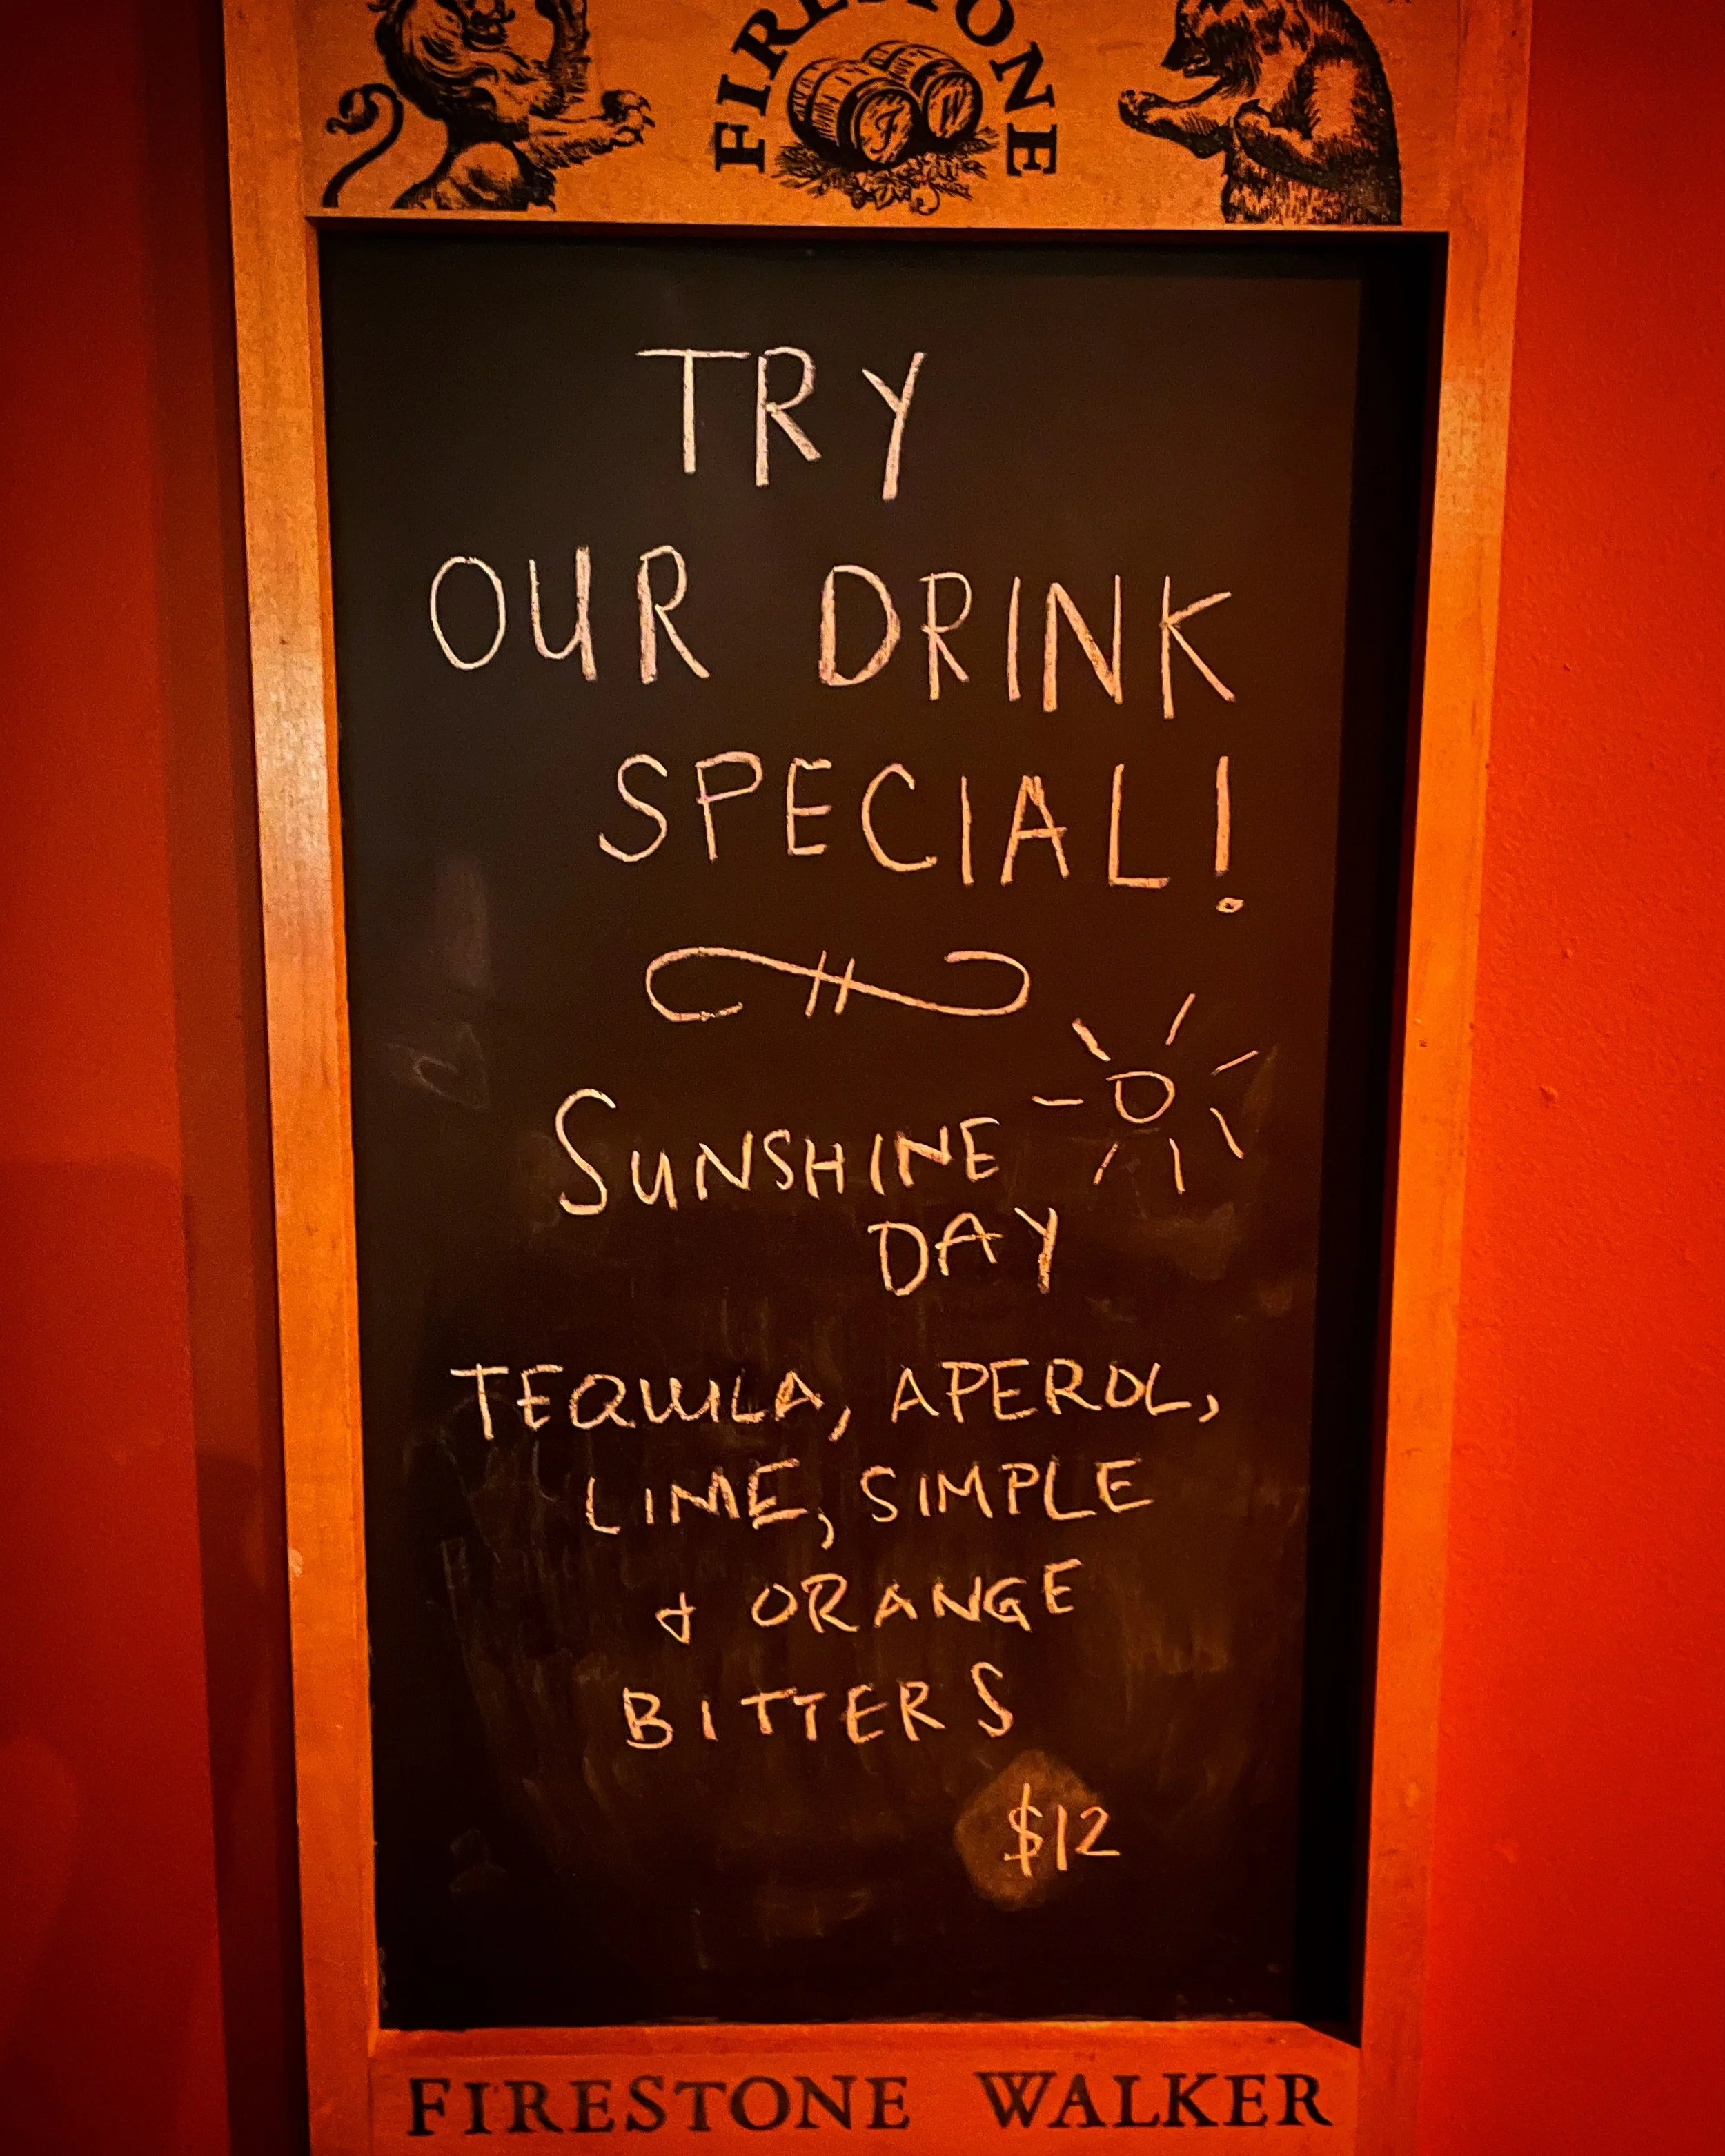 FIRESTONE
F W
TRY
OUR DRINK
SPECIAL!
SUNSHINE
DAY
TEQUILA, APEROL,
LIME, SIMPLE
& ORANGE
BITTERS
$12
FIRESTONE WALKER